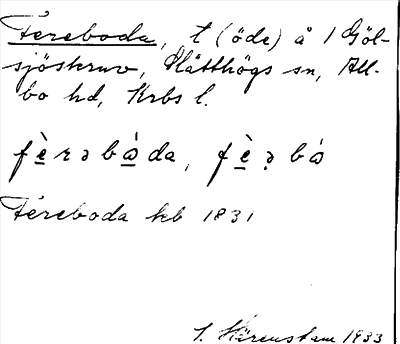 Fereboda, t (öde) å 1 Göl-
sjöskruv, Slätthögs sn, All-
bo hd, Krbs l.
fè̱rəbå̱̀da, fè̱ə̣bå̀
Fereboda kb 1831
1933